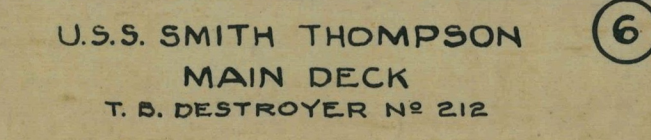 U.S.S. SMITH THOMPSON
MAIN DECK
T. B. DESTROYER Nº 212
6